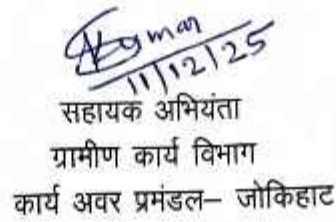 Kumar
11/12/25
सहायक अभियंता
ग्रामीण कार्य विभाग
कार्य अवर प्रमंडल– जोकिहाट